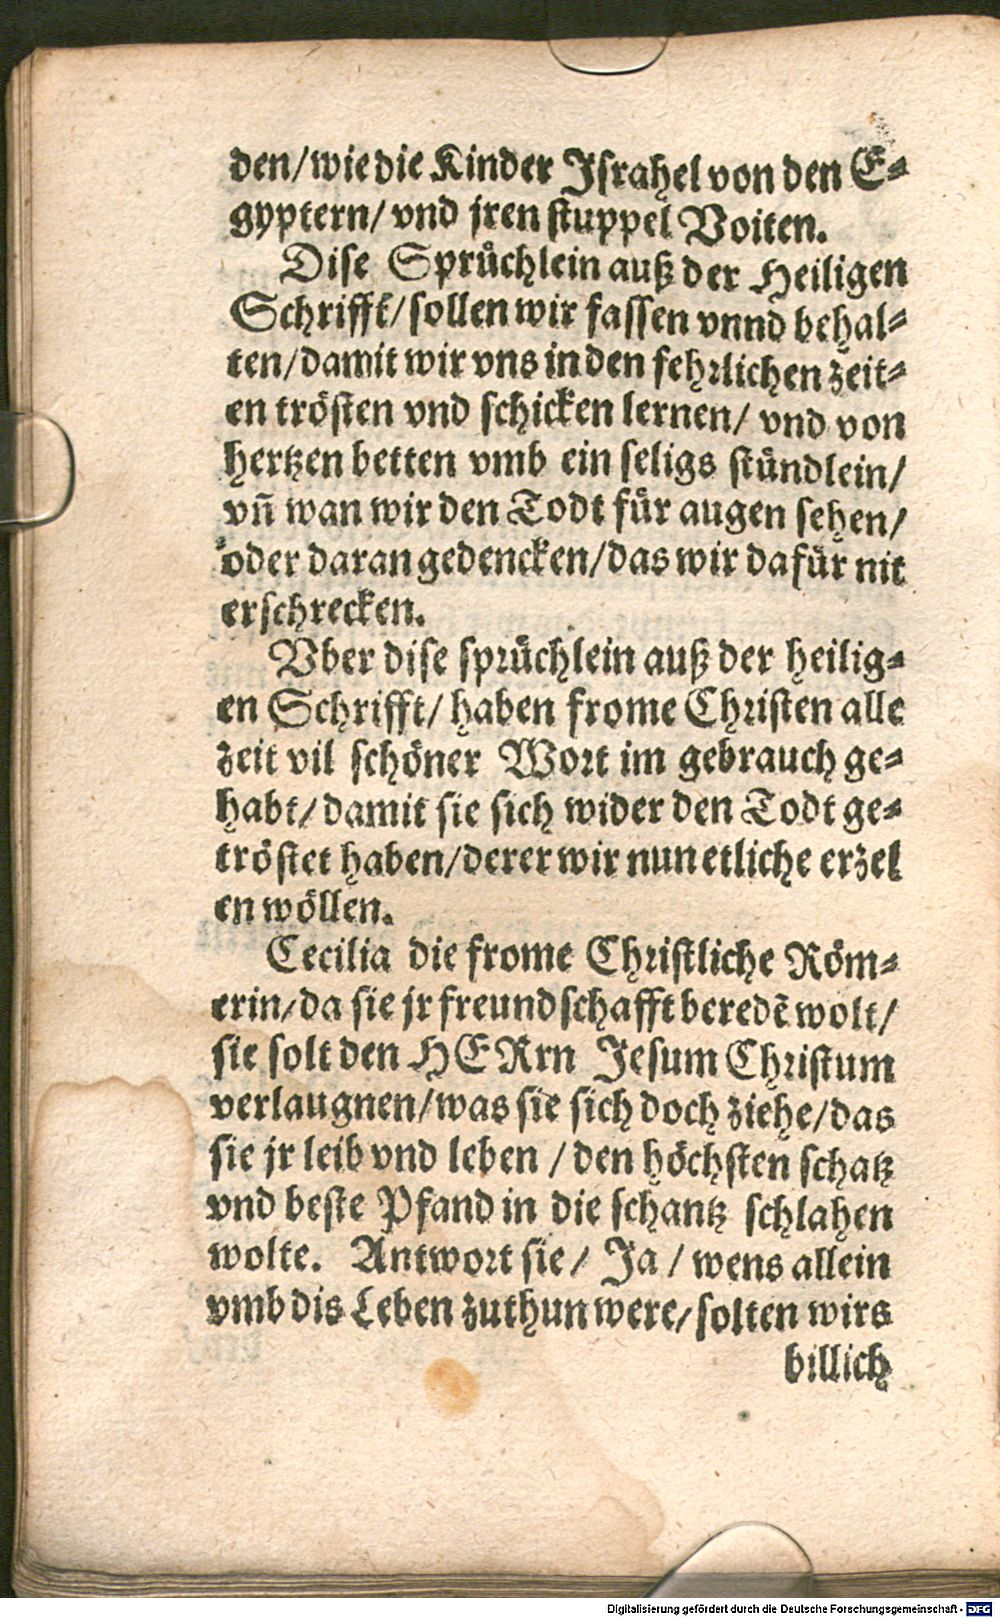 den/wie die Kinder Israhel von den E⸗
gyptern/ vnd jren stuppel Voiten.
Dise Sprůchlein auß der Heiligen
Schrifft/ sollen wir fassen vnnd behal⸗
ten/damit wir vns in den fehrlichen zeit⸗
en trösten vnd schicken lernen/ vnd von
hertzen betten vmb ein seligs stündlein/
vñ wan wir den Todt für augen sehen/
oder daran gedencken/das wir dafür nit
erschrecken.
Vber dise sprůchlein auß der heilig⸗
en Schrifft/ haben frome Christen alle
zeit vil schöner Wort im gebrauch ge⸗
habt/ damit sie sich wider den Todt ge⸗
tröstet haben/derer wir nun etliche erzel
en wöllen.
Cecilia die frome Christliche Röm⸗
erin/da sie jr freundschafft beredẽ wolt/
sie solt den HERrn Jesum Christum
verlaugnen/was sie sich doch ziehe/das
sie jr leib vnd leben / den höchsten schatz
vnd beste Pfand in die schantz schlahen
wolte. Antwort sie/ Ja / wens allein
vmb dis Leben zuthun were/solten wirs
billich
Digitalisierung gefördert durch die Deutsche Forschungsgemeinschaft - DFG